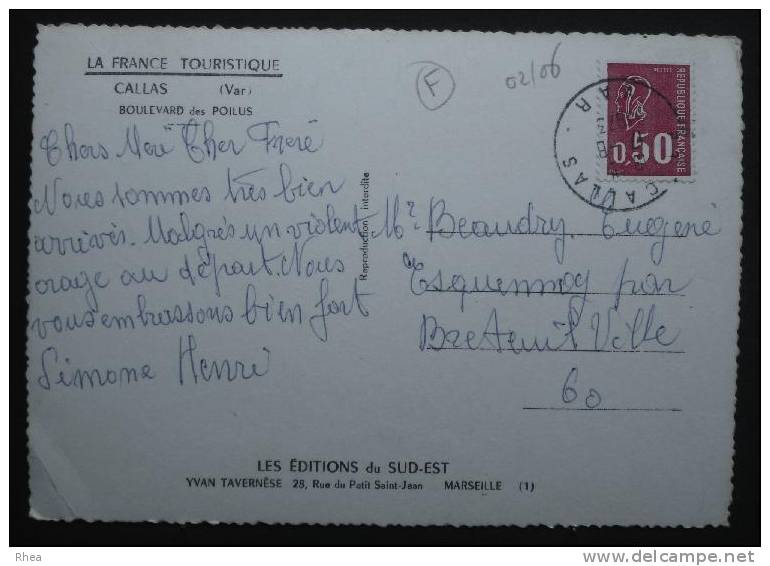 LA FRANCE TOURISTIQUE
CALLAS (Var)
BOULEVARD des POILUS
F
02/06
POSTES
REPUBLIQUE FRANÇAISE
0,50
CALLAS
VAR
Chers Meré Cher Freré
Nous sommes très bien
arrivés. Malgrés un violent
orage au départ. Nous
vous embrassons bien fort
Simone Henri
Reproduction interdite
Mr Beaudry Eugené
a Esquennoy par
Breteuil Ville
60
LES ÉDITIONS du SUD-EST
YVAN TAVERNÈSE 28, Rue du Petit Saint-Jean MARSEILLE (1)
Rhea
www.delcampe.net